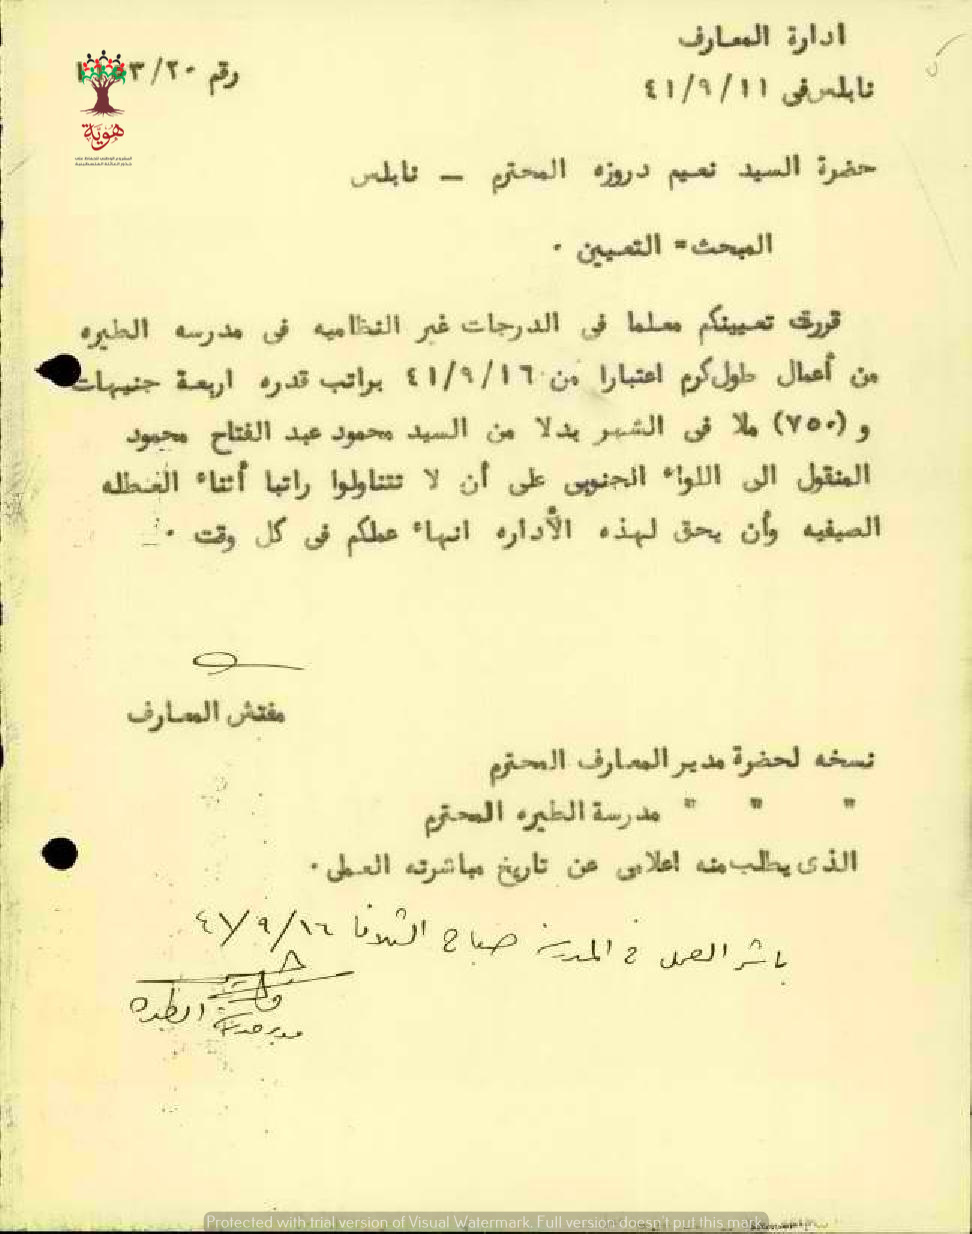 ادارة المعارف
رقم
نابلس في ٤١/٩/١١
هوية
حضرة السيد نعيم دروزه المحترم — نابلس
المبحث = التعيين ٠
قررت تعيينكم معلما في الدرجات غير النظاميه في مدرسه الطيره
من أعمال طولكرم اعتبارا من ٤١/٩/١٦ براتب قدره اربعة جنيهات
و (٧٥٠) ملا في الشهر بدلا من السيد محمود عبد الفتاح محمود
المنقول الى اللواء الجنوبي على أن لا تتناولوا راتبا أثناء العطله
الصيفيه وأن يحق لهذه الأداره انهاء عملكم في كل وقت ٠
مفتش المعارف
نسخه لحضرة مدير المعارف المحترم
" " " مدرسة الطيره المحترم
الذى يطلب منه اعلامي عن تاريخ مباشرته العملى ٠
باشر العمل في المدرسة صباح الثلاثا ٤١/٩/١٦
مدير مدرسة الطيره
Protected with trial version of Visual Watermark. Full version doesn't put this mark.